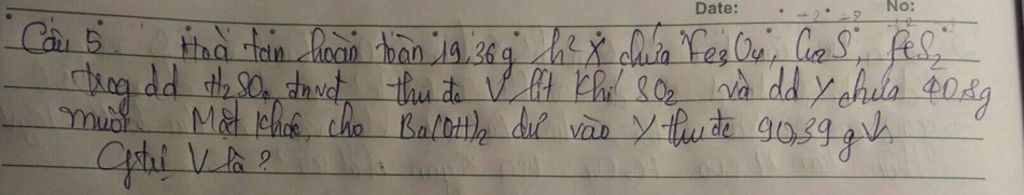 Date: No:
Câu 5. Hoà tan hoàn toàn 19,36g h² X chứa Fe3O4, Cu2S, FeS2
trog dd H2SO4 đnvđ thu đc V lít khí SO2 và dd Y chứa 40,8g
muối. Mặt khác, cho Ba(OH)2 dư vào Y thu đc 90,39 g ↓.
Gtrị V là?